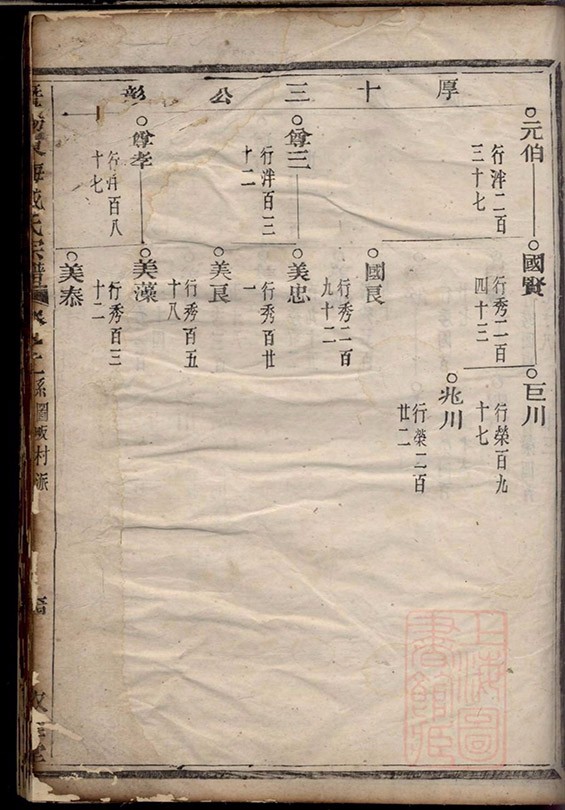 厚十三公彰一
元伯
行泮二百
三十七
國賢
行秀二百
四十三
巨川
行榮百九
十七
兆川
行榮二百
廿二
國良
行秀二百
九十二
尊三
行泮百三
十二
美忠
行秀百廿
一
美良
行秀百五
十八
尊孝
行泮百八
十七
美藻
行秀百三
十二
美泰
氏宗譜
系圖
村派
上海圖
書館藏